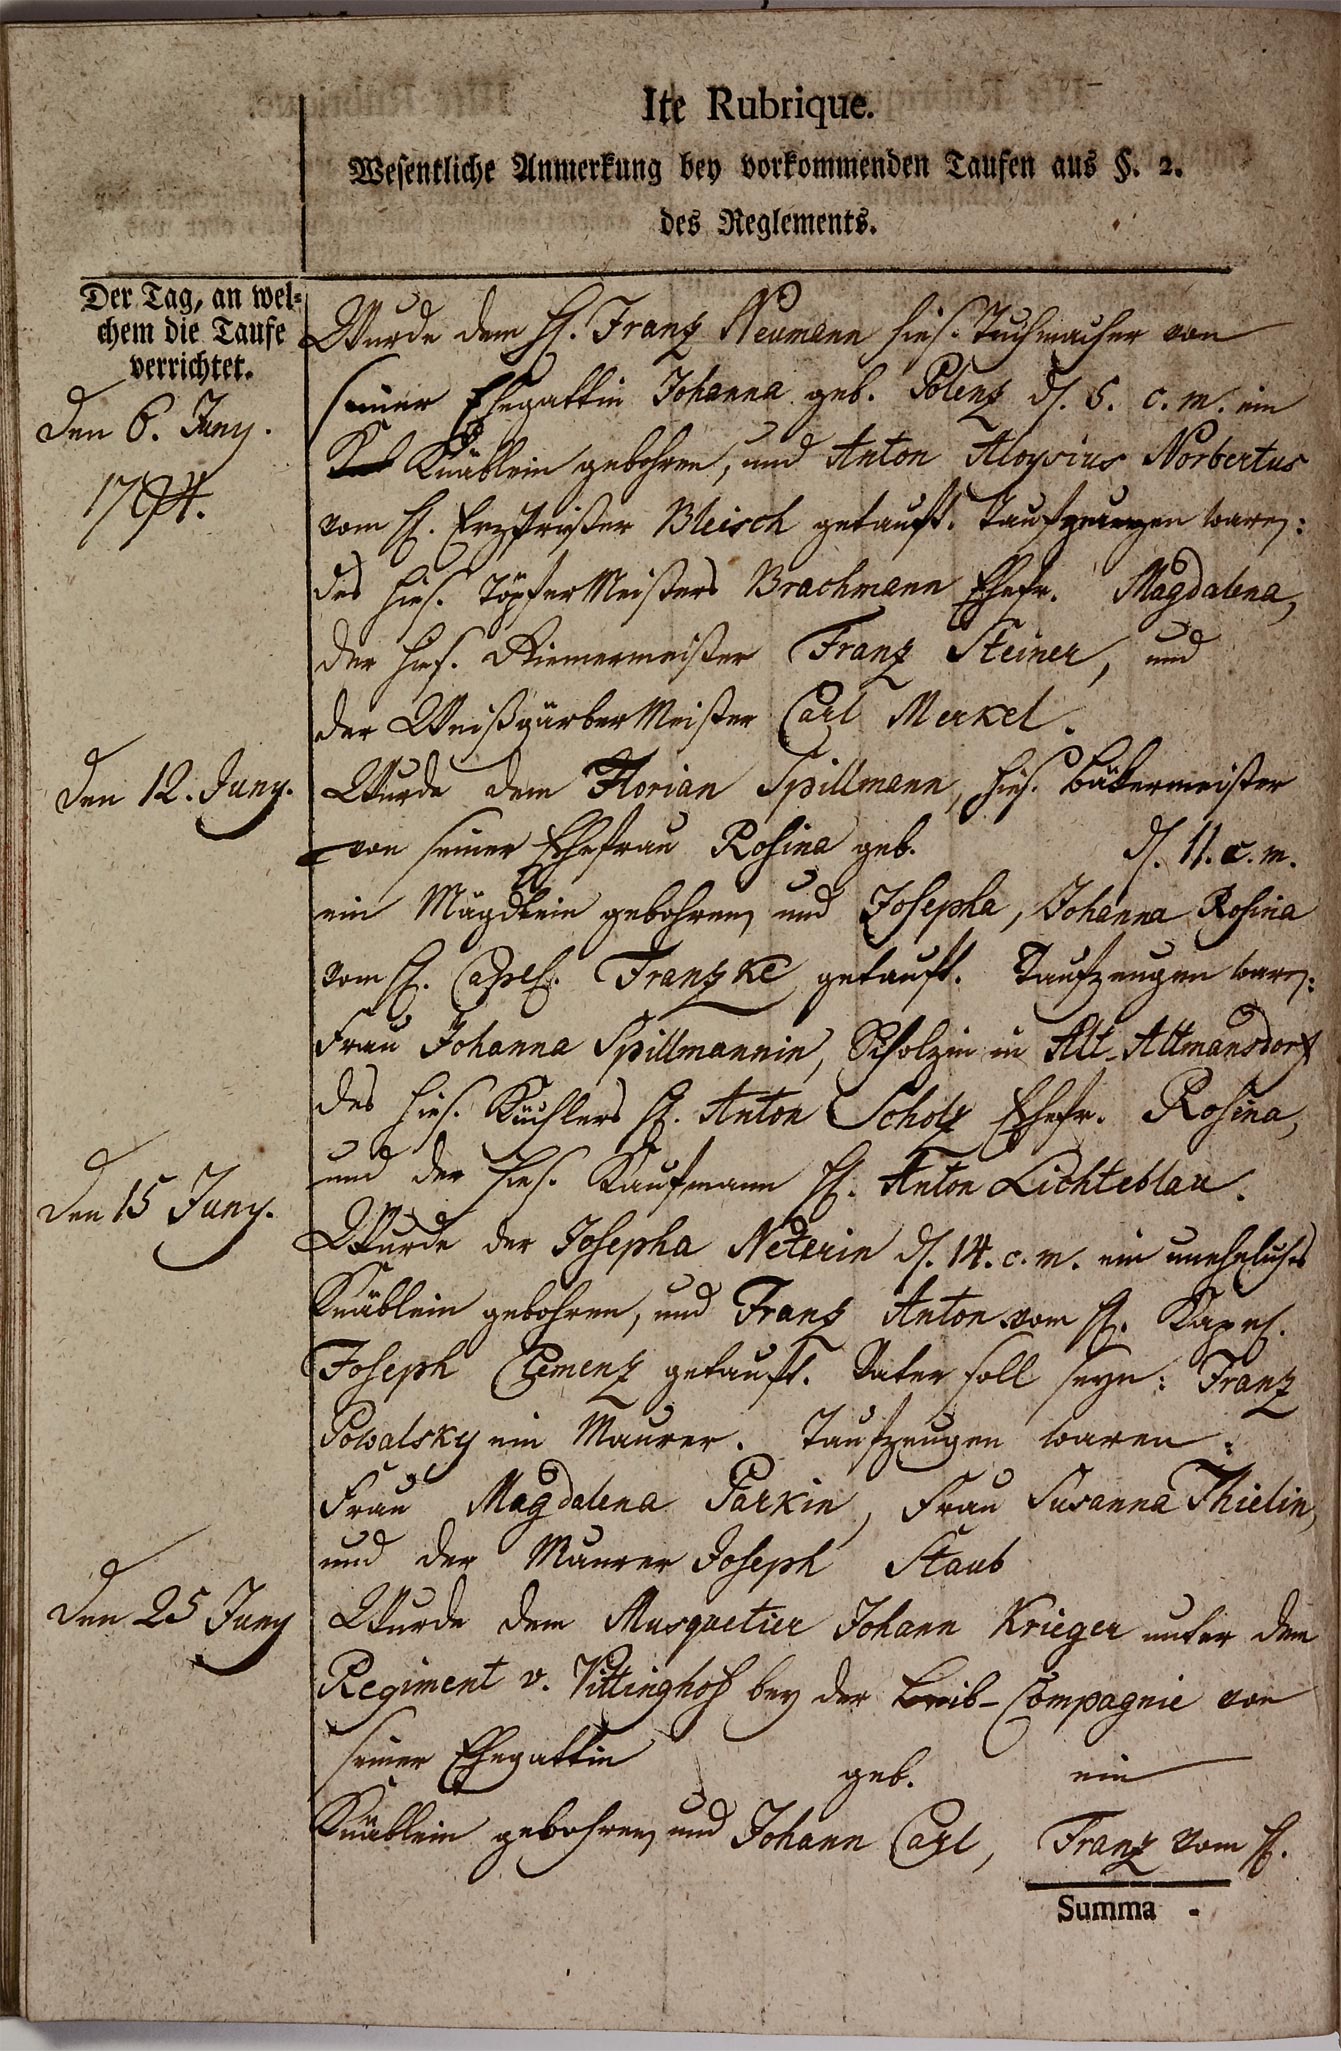 Ite Rubrique.
Wesentliche Anmerkung bey vorkommenden Taufen aus §. 2.
des Reglements.
Der Tag, an wel-
chem die Taufe
verrichtet.
Den 6. Juny.
1794.
Wurde dem H. Franz Neumann hies. Tuchmacher von
seiner Ehegattin Johanna geb. Polenz d. 5. c. m. ein
Knäblein gebohren, und Anton Aloysius Norbertus
vom H. Erzpriester Bleisch getauft. Taufzeugen waren:
des hies. Töpfer Meisters Brachmann Ehefr. Magdalena,
der hies. Riemermeister Franz Steiner, und
der Weißgärber Meister Carl Merkel.
Den 12. Juny.
Wurde dem Florian Spillmann, hies. Bäkermeister
von seiner Ehefrau Rosina geb. d. 11. c. m.
ein Mägdlein gebohren, und Josepha, Johanna Rosina
vom H. Franzke getauft. Taufzeugen waren:
Frau Johanna Spillmannin, Scholzin in Alt-Altmansdorf
des hies. H. Anton Scholz Ehefr. Rosina,
und der hies. Kaufmann H. Anton Lichteblau.
Den 15 Juny.
Wurde der Josepha Neterin d. 14. c. m. ein unehliches
Knäblein gebohren, und Franz Anton vom H. Kapel.
Joseph Clemenz getauft. Vater soll seyn: Franz
Powalsky ein Maurer. Taufzeugen waren:
Frau Magdalena Parkin, Frau Susanna Thielin,
und der Maurer Joseph Staub
Den 25 Juny
Wurde dem Musquetier Johann Krieger unter dem
Regiment v. Vittinghof bey der Leib-Compagnie von
seiner Ehegattin geb. ein
Knäblein gebohren, und Johann Carl, Franz vom H.
Summa -